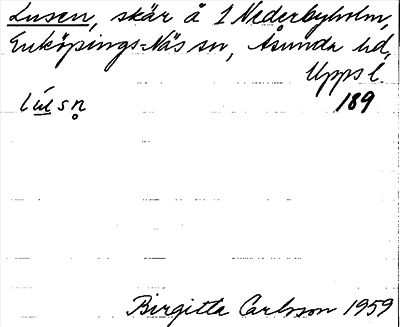 Lusen, skär å 1 Nederbyholm,
Enköpings-Näs sn, Åsunda hd,
Upps l.
189
Birgitta Carlsson 1959